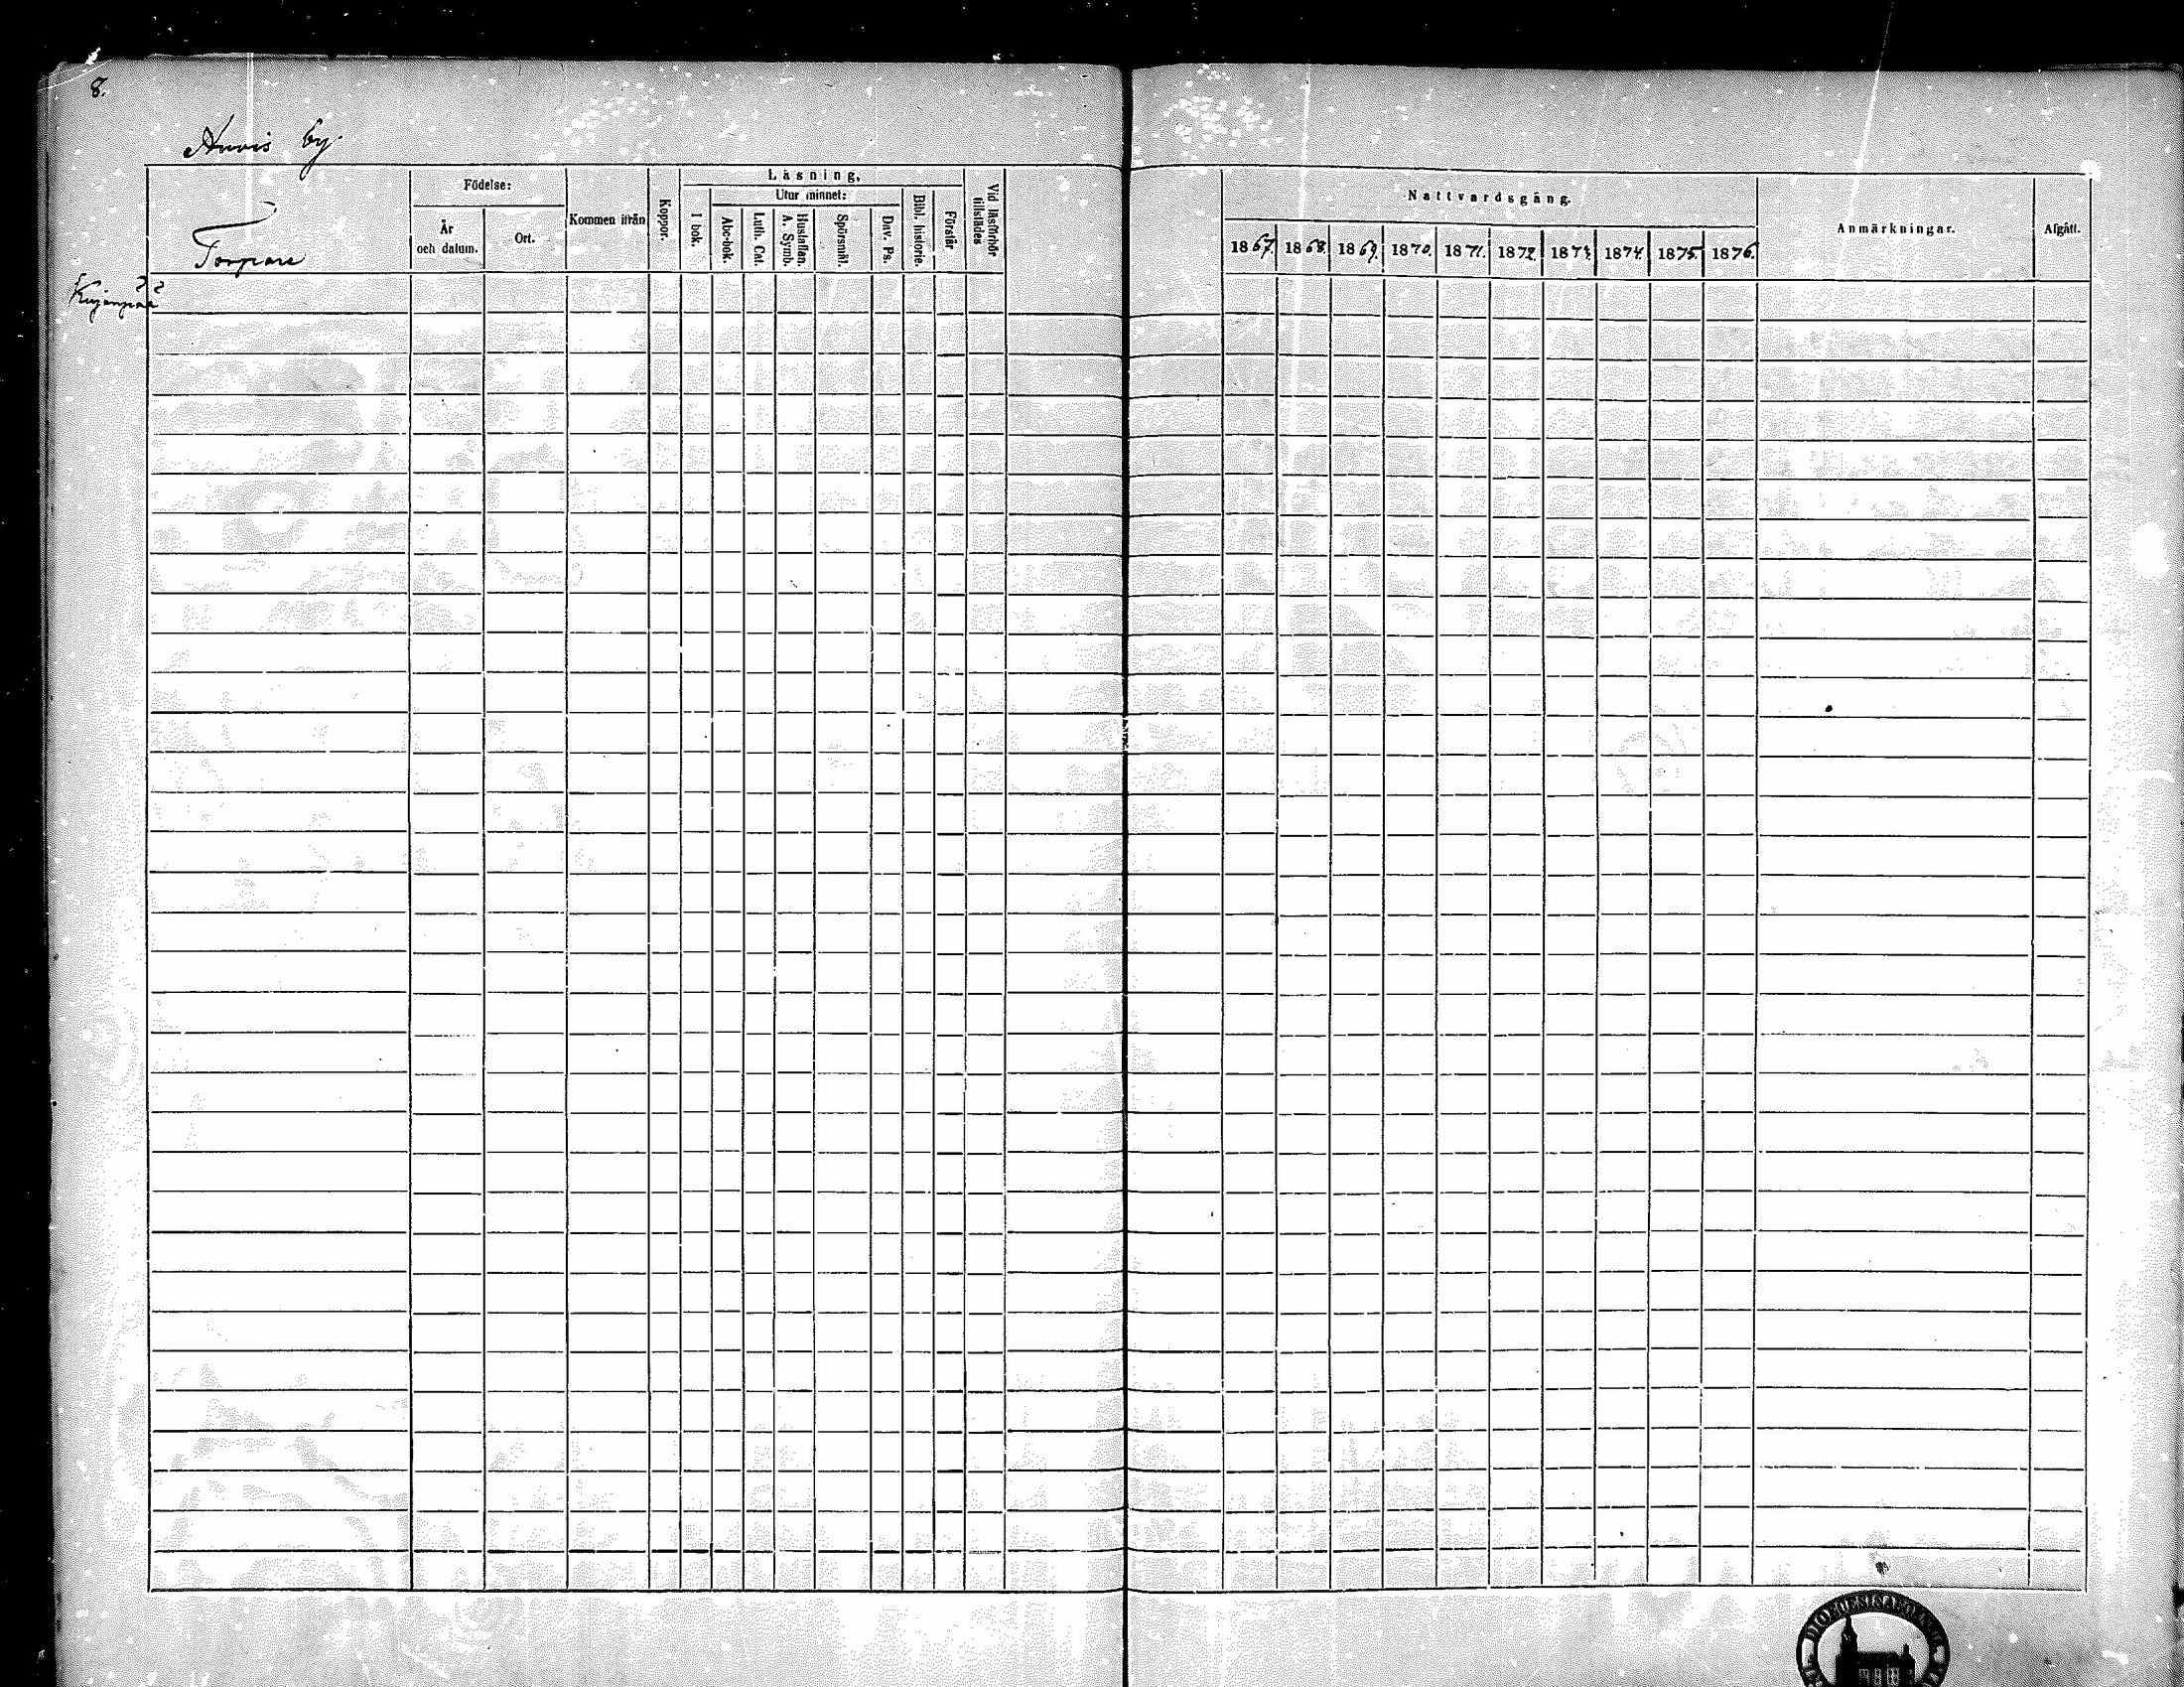 8.
Anvis by.
Torpare
Födelse:
År
och datum.
Ort.
Kommen ifrån
Koppor.
Läsning,
I bok.
Utur minnet:
Abc-bok.
Luth. Cat.
Hustaflan.
A. Symb.
Spörsmål.
Dav. Ps.
Bibl. historie.
Förstår.
Vid läsförhör
tillstädes
Nattvardsgång.
1867. 1868. 1869. 1870. 1871. 1872. 1873. 1874. 1875. 1876.
Anmärkningar.
Afgått.